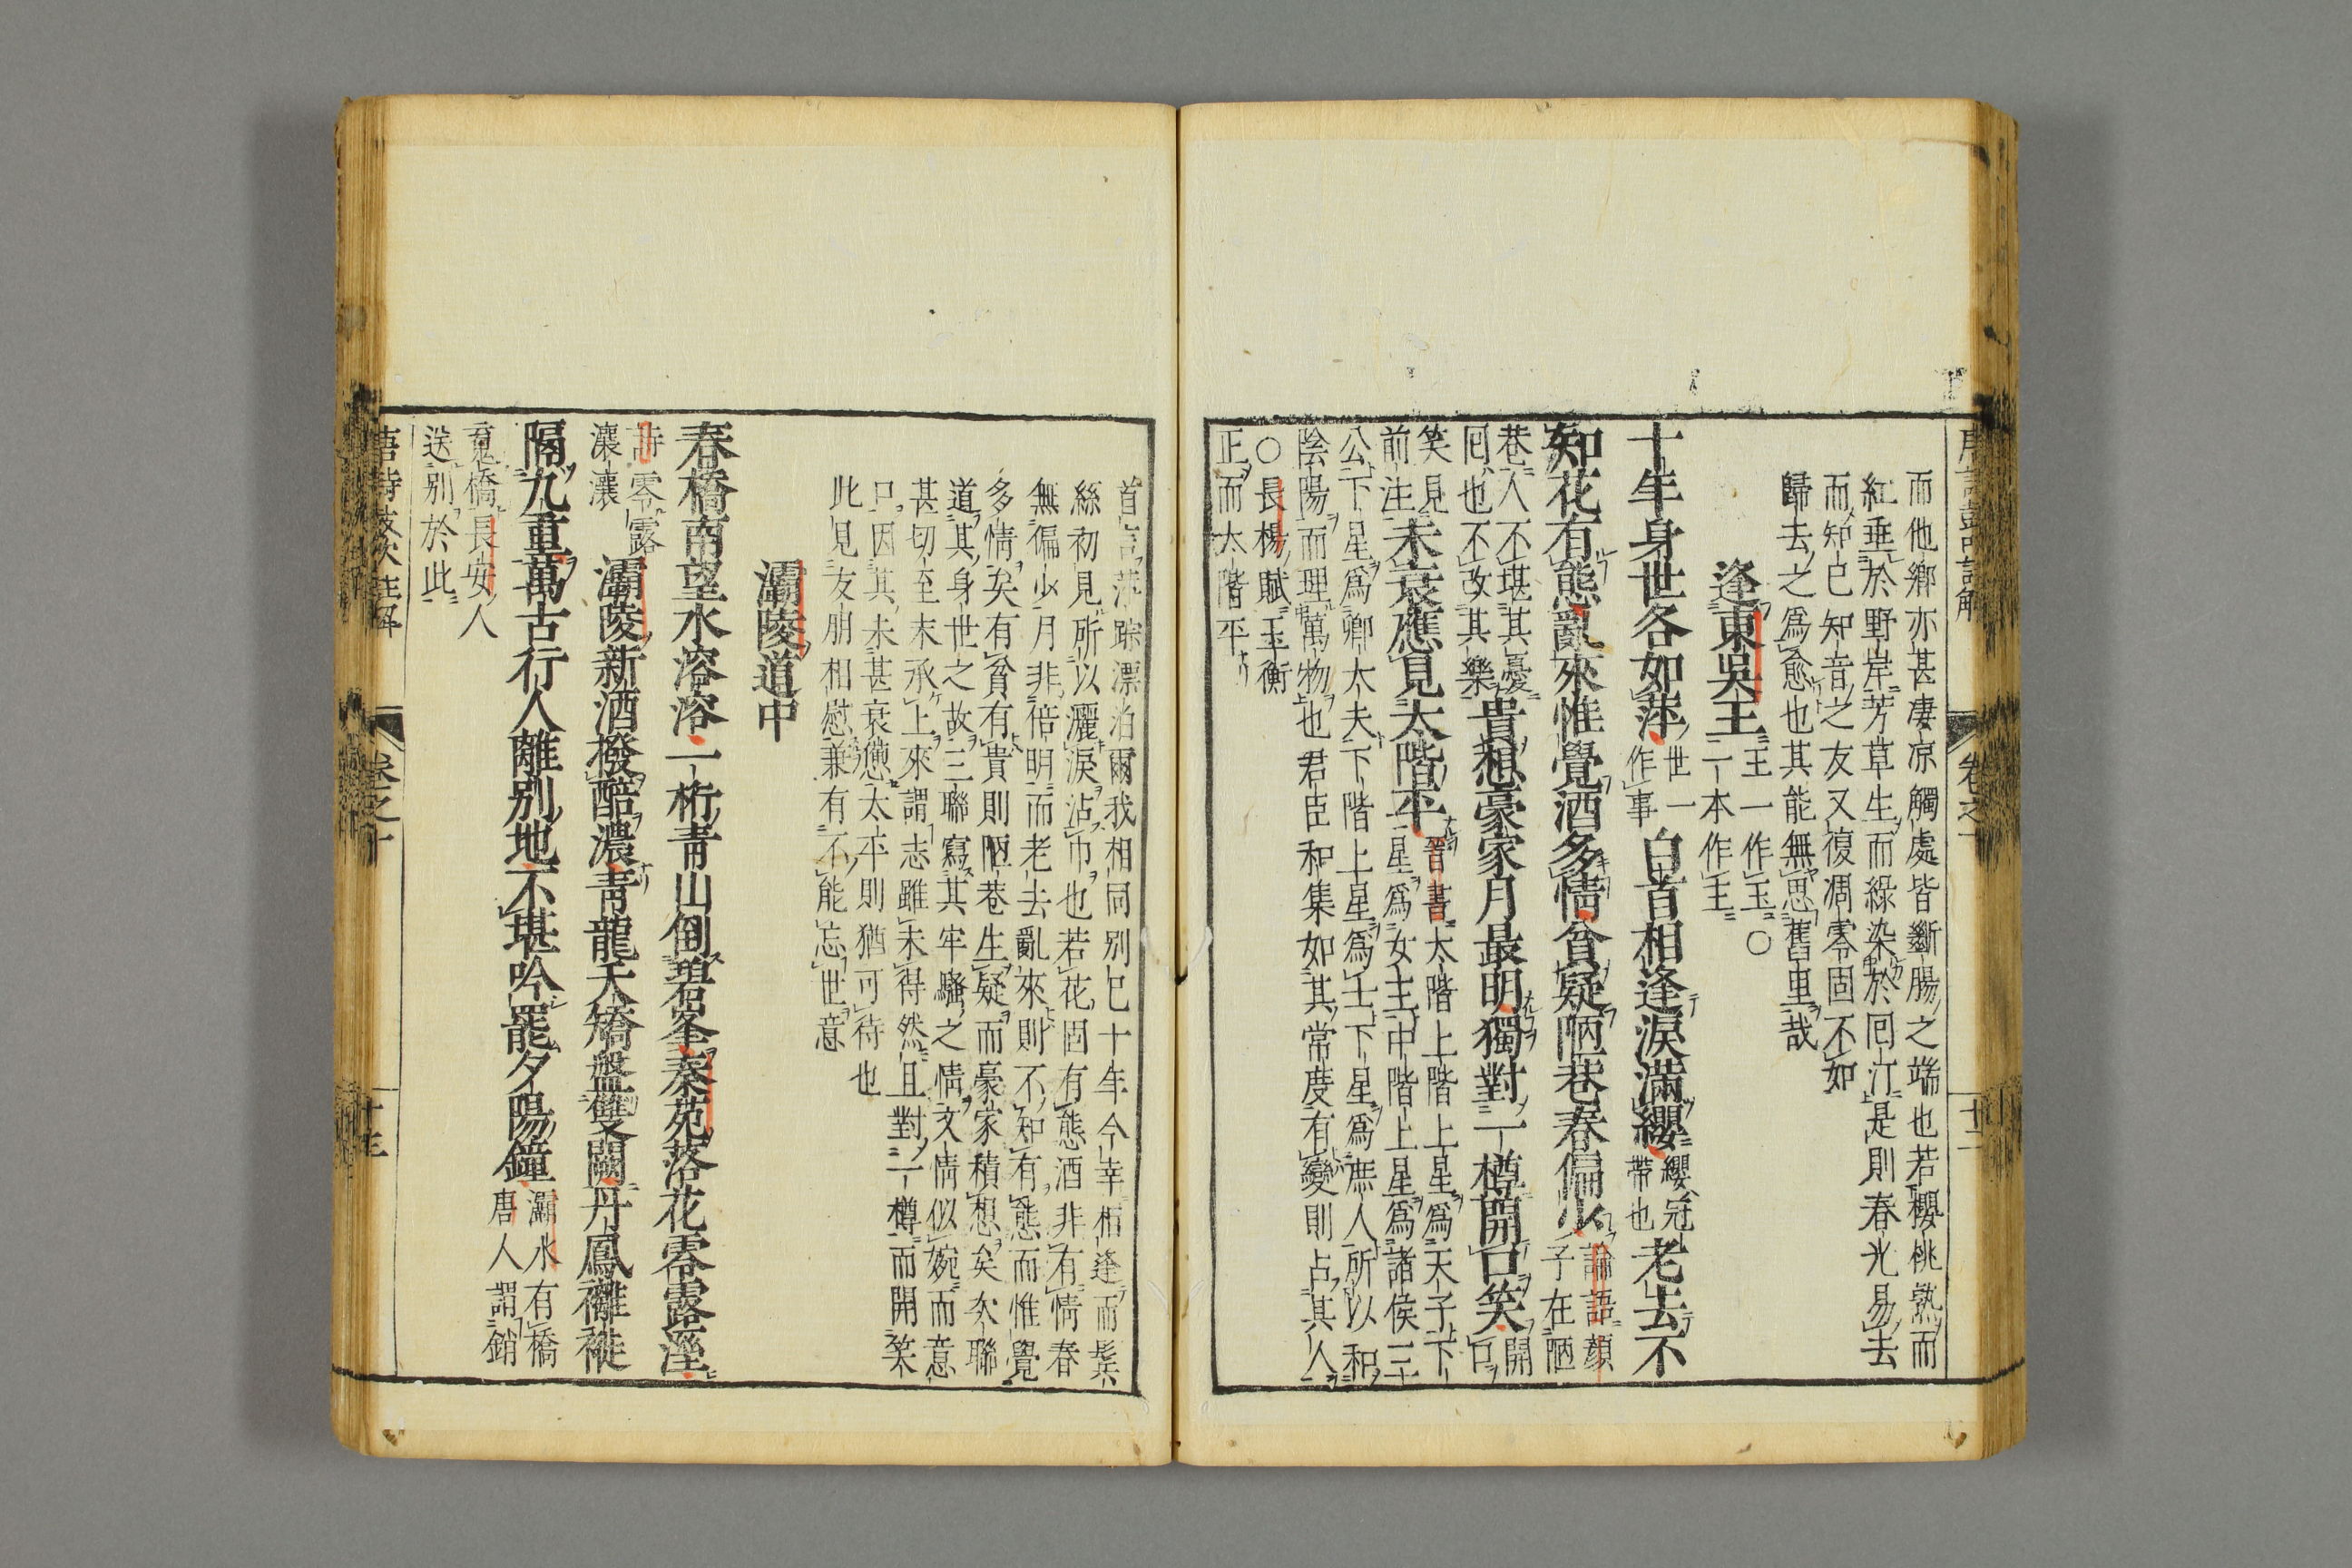 而他鄉亦甚凄凉觸處皆斷腸之端也若櫻桃熟而
紅垂於野岸芳草生而綠染於囘汀是則春光易去
而知巳知音之友又復凋零固不如
歸去之爲愈也其能無思舊里哉
逢東吳王
王一作玉○
一本作王
十年身世各如萍
世一
作事
白首相逢淚滿纓
纓冠
帶也
老去不
知花有態亂來惟覺酒多情貧疑陋巷春偏少
論語顏
子在陋
巷人不堪其憂
囘也不改其樂
貴想豪家月最明獨對一樽開口笑
開
口
笑見
前注
未衰應見太階平
晉書太階上階上星爲天子下
星爲女主中階上星爲諸侯三
公下星爲卿大夫下階上星爲士下星爲庶人所以和
陰陽而理萬物也君臣和集如其常度有變則占其人
○長楊賦玉衡
正而太階平
首言萍踪漂泊爾我相同別巳十年今幸相逢而鬓
絲初見所以灑淚沾巾也若花固有態酒非有情春
無偏少月非倍明而老去亂來則不知有態而惟覺
多情矣有貧有貴則陋巷生疑而豪家積想矣次聯
道其身世之故三聯寫其牢騷之情文情似婉而意
甚切至末承上來謂志雖未得然且對一樽而開笑
口因其未甚衰憊太平則猶可待也
此見友朋相慰兼有不能忘世意
灞陵道中
春橋南望水溶溶一桁青山倒碧峯秦苑落花零露溼
詩零露
瀼瀼
灞陵新酒撥醅濃青龍夭矯盤雙闕丹鳳襹褷
隔九重萬古行人離別地不堪吟罷夕陽鐘
灞水有橋
唐人謂銷
䰟橋長安人
送別於此
卷之十
十二